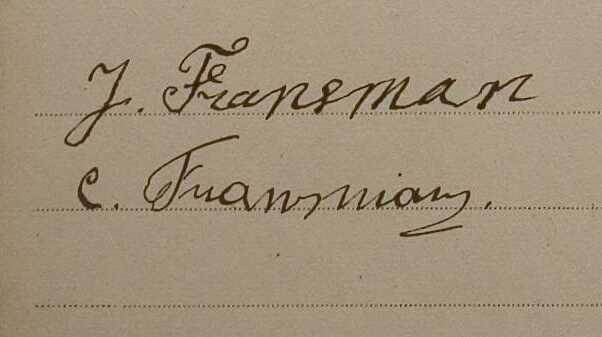 J. Fransman
C. Fransman.